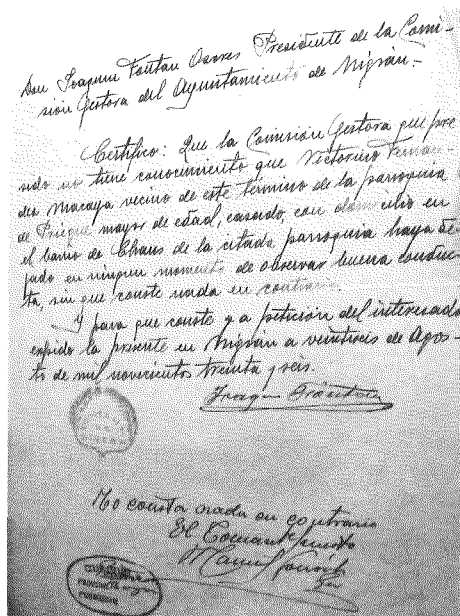 Don Joaquin Fontan Presidente de la Comi-
sión Gestora del Ayuntamiento de Nigrán-
Certifico: Que la Comisión Gestora que pre
sido no tiene conocimiento que Victorino Fernan
dez Macaya vecino de este término de la parroquia
de Priegue mayor de edad, casado, con domicilio en
el barrio de Chans de la citada parroquia haya de
jado en ningun momento de observar buena conduc
ta, sin que conste nada en contrario.
Y para que conste y a petición del interesado
expido la presente en Nigrán a veintiseis de Agos-
to de mil novecientos treinta y seis.
Joaquin Fontan
No consta nada en contrario
El Comant Puesto
Manuel